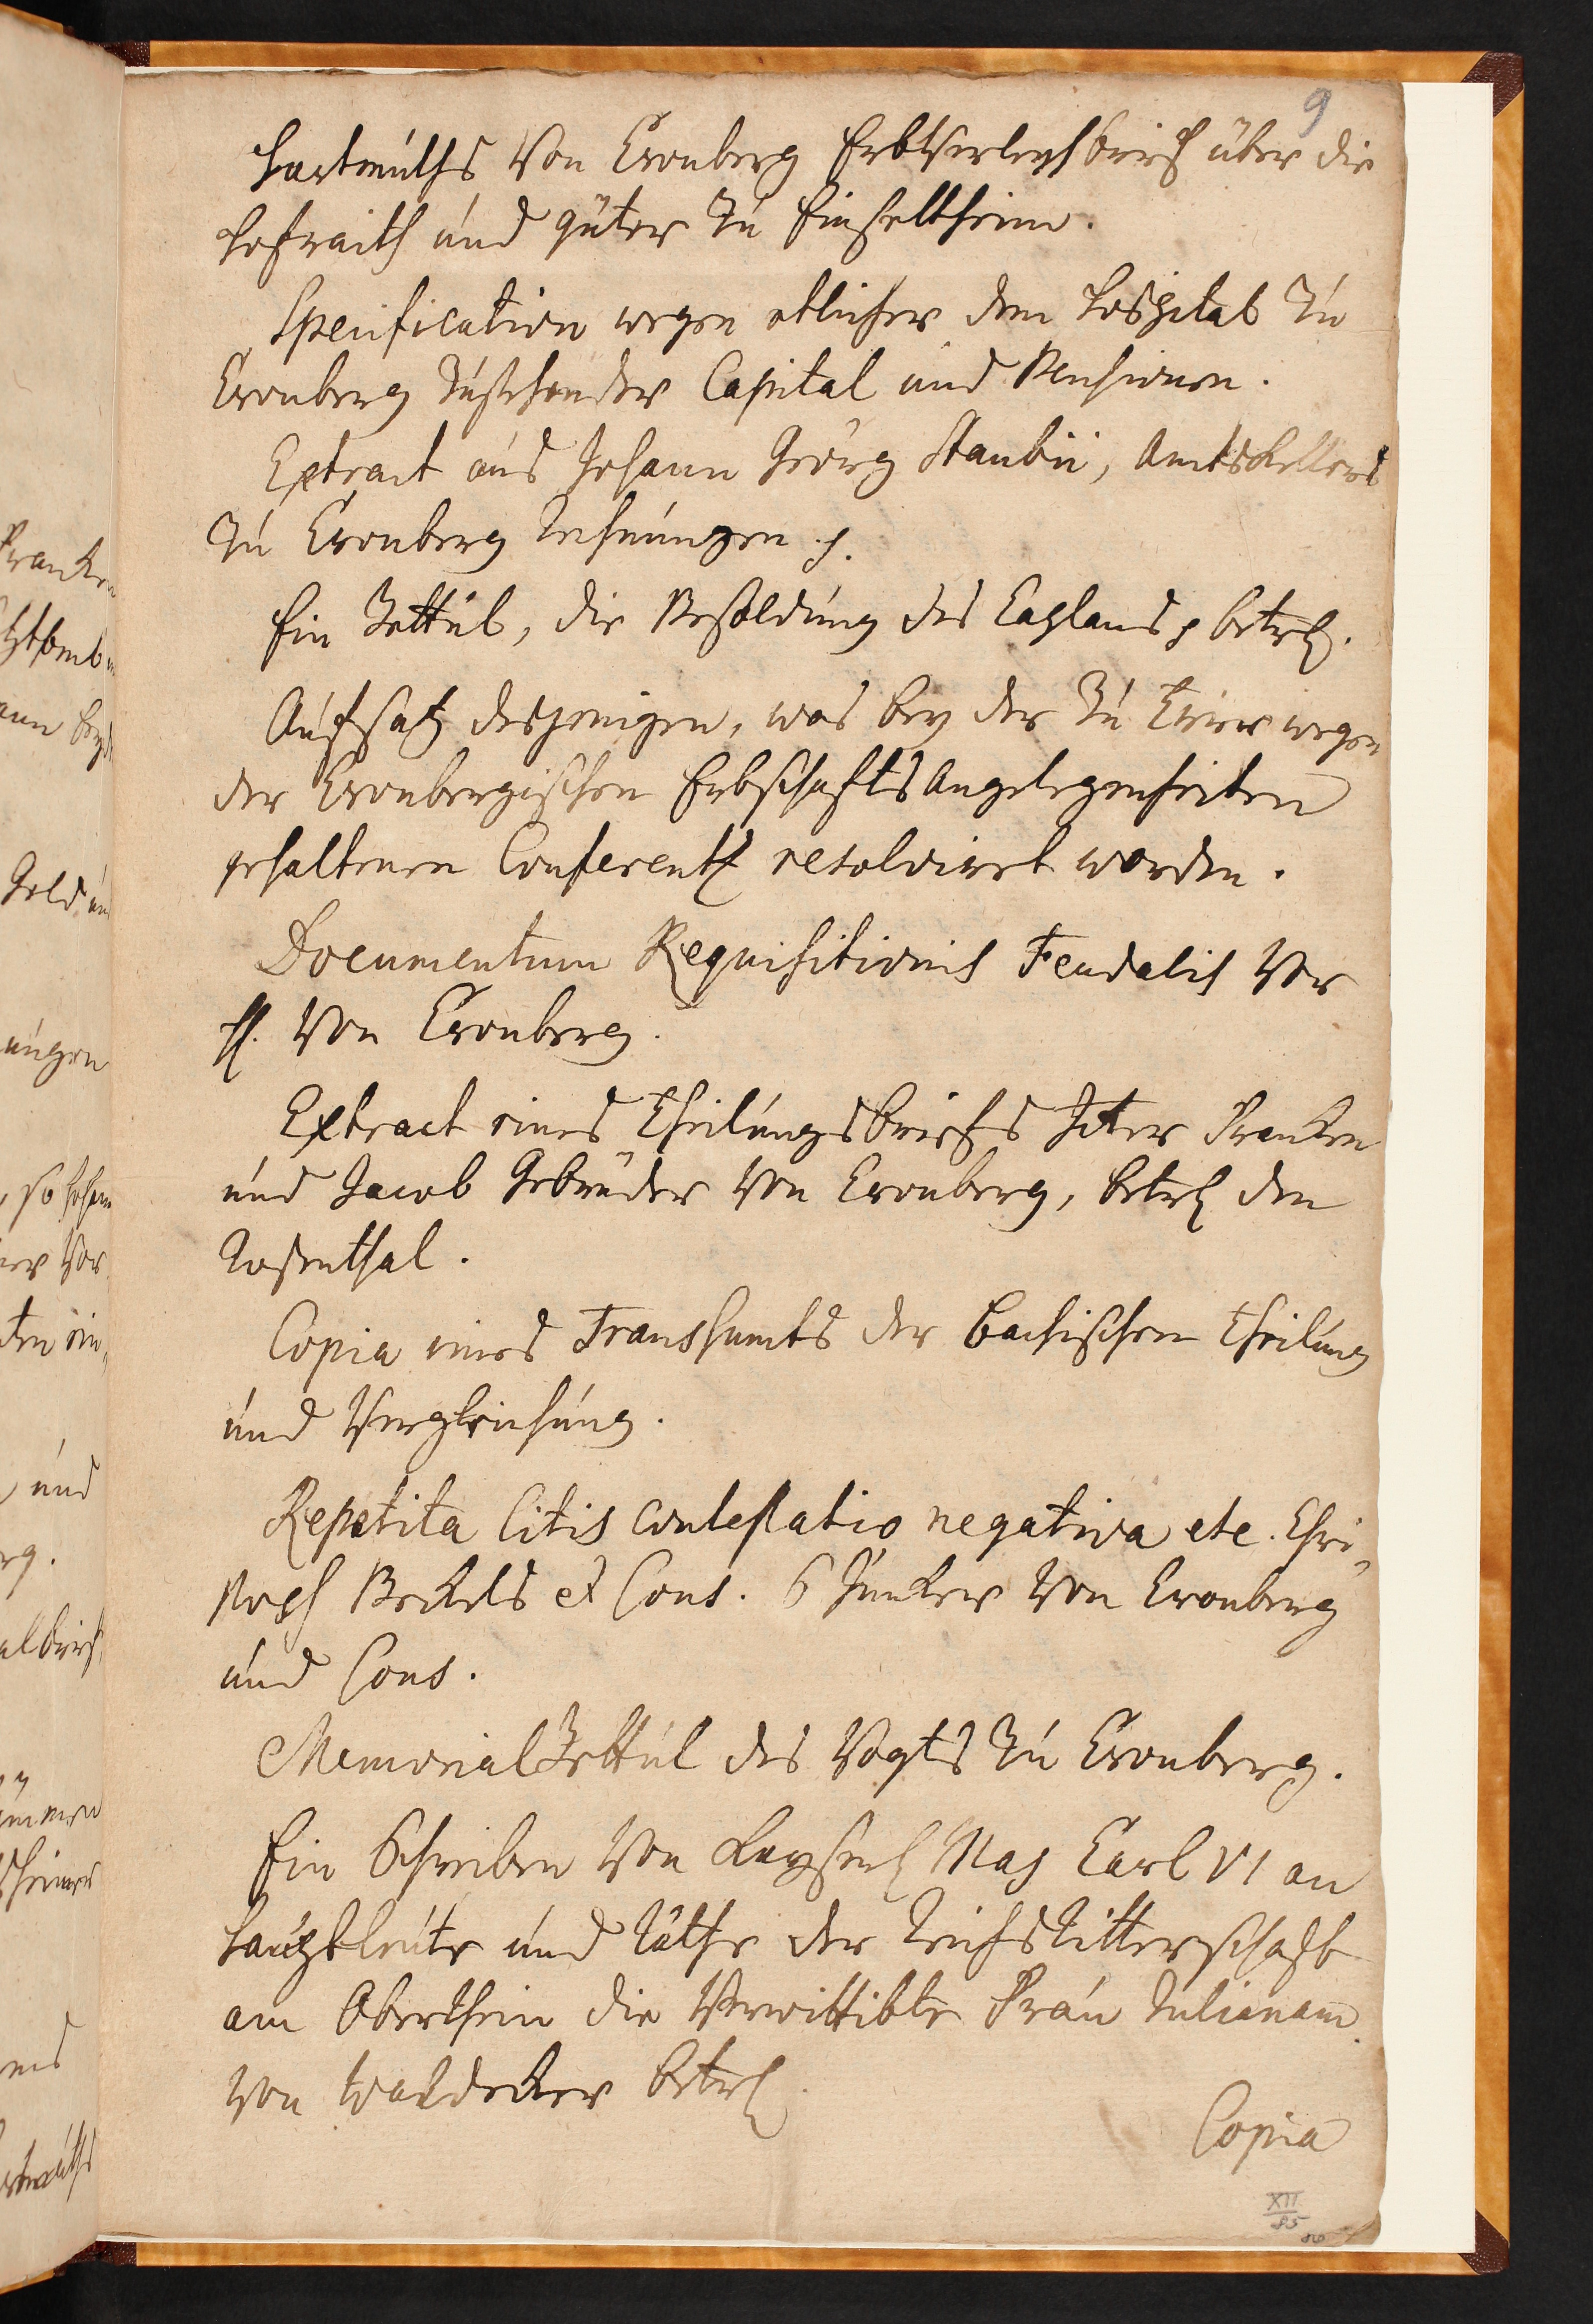 9
Hartmuths Von Cronberg Erbverleyhbrief über die
Hofraith und güter zu Einseltheim.
Specification wegen etlicher dem Hospital zu
Cronberg zustehender Capital und Pensionen.
Extract aus Johann Georg Staubii, Amtskellers
zu Cronberg Rechnungen p.
Ein Zettul, die Besoldung des Caplans p betrf.
Aufsatz desjenigen, was bey der zu Trier wegen
der Cronbergischen ErbschaftsAngelegenheiten
gehaltenen Conferentz resolviret worden.
Documentum Requisitionis Feudalis Vor
H. Von Cronberg.
Extract eines Theilungsbriefs Franken
und Jacob Gebrüder Von Cronberg, betrf den
Rosenthal.
Copia eines Transsumts der bachischen Theilung
und Vergleichung.
Repetita Litis contestatio negativa etc. Chri„
stoph Beckels et Cons. Juncker Von Cronberg
und Cons.
MemorialZettul des Vogts zu Cronberg.
Ein Schreiben Von Kayserl Maj Carl VI an
Hauptleute und Räthe der ReichsRitterschaft
am OberRhein die Verwittibte Frau Julianam
Von Waldecker betrf.
Copia
XII
85